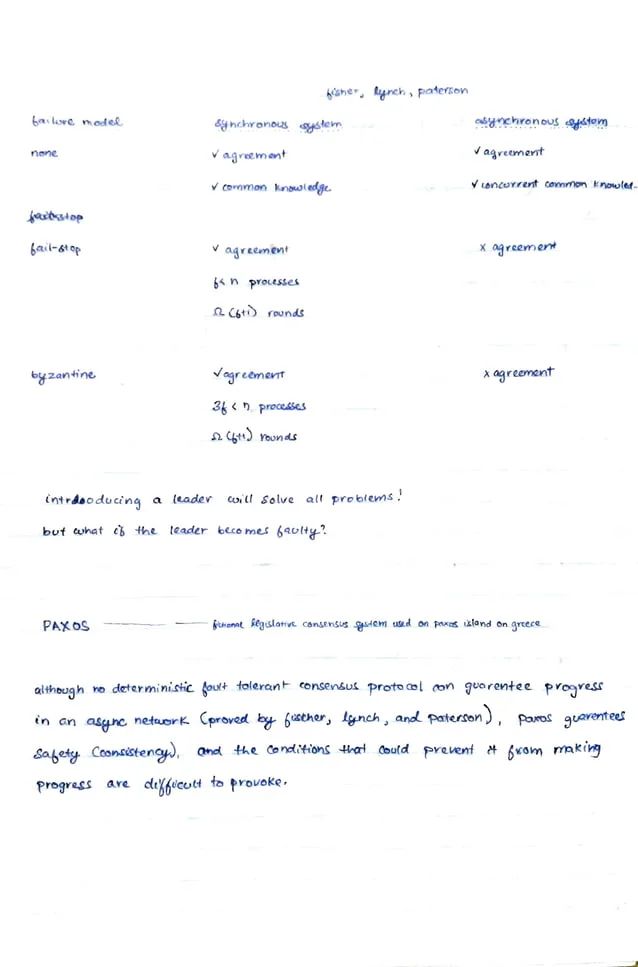 fisher, lynch, paterson
failure model synchronous system asynchronous system
none ✓ agreement ✓ agreement
✓ common knowledge ✓ concurrent common knowled-
fail-stop
fail-stop ✓ agreement x agreement
f < n processes
Ω (f+1) rounds
byzantine ✓ agreement x agreement
3f < n processes
Ω (f+1) rounds
introducing a leader will solve all problems!
but what if the leader becomes faulty?
PAXOS —— fictional legislative consensus system used on paxos island on greece
although no deterministic fault tolerant consensus protocol can guarentee progress
in an async network (proved by fischer, lynch, and paterson), paxos guarentees
safety (consistency), and the conditions that could prevent it from making
progress are difficult to provoke.